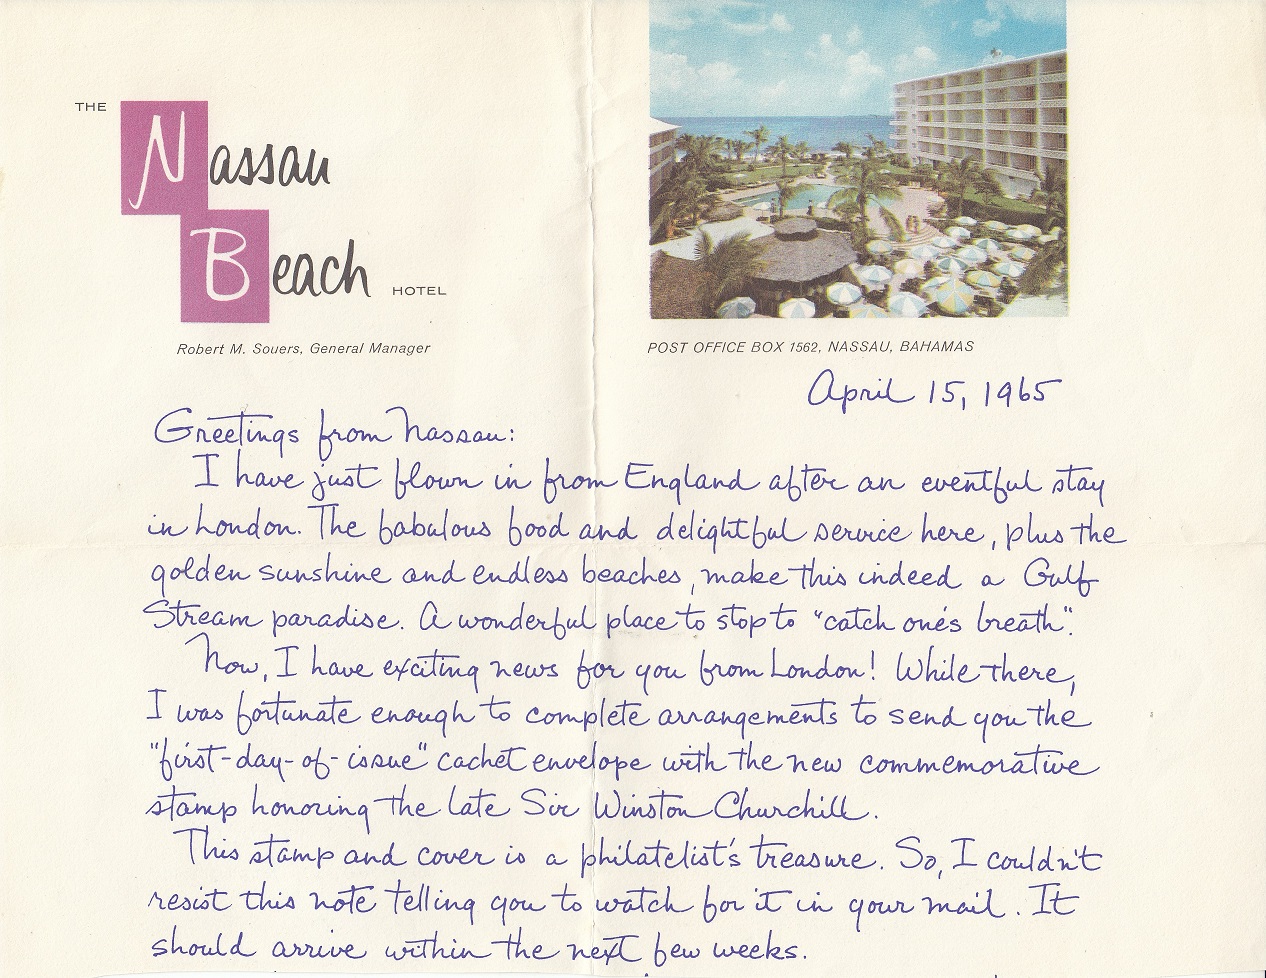 THE
Nassau
Beach HOTEL
Robert M. Souers, General Manager
POST OFFICE BOX 1562, NASSAU, BAHAMAS
April 15, 1965
Greetings from Nassau:
I have just flown in from England after an eventful stay
in London. The fabulous food and delightful service here, plus the
golden sunshine and endless beaches, make this indeed a Gulf
Stream paradise. A wonderful place to stop to "catch one's breath".
Now, I have exciting news for you from London! While there,
I was fortunate enough to complete arrangements to send you the
"first-day-of-issue" cachet envelope with the new commemorative
stamp honoring the late Sir Winston Churchill.
This stamp and cover is a philatelist's treasure. So, I couldn't
resist this note telling you to watch for it in your mail. It
should arrive within the next few weeks.